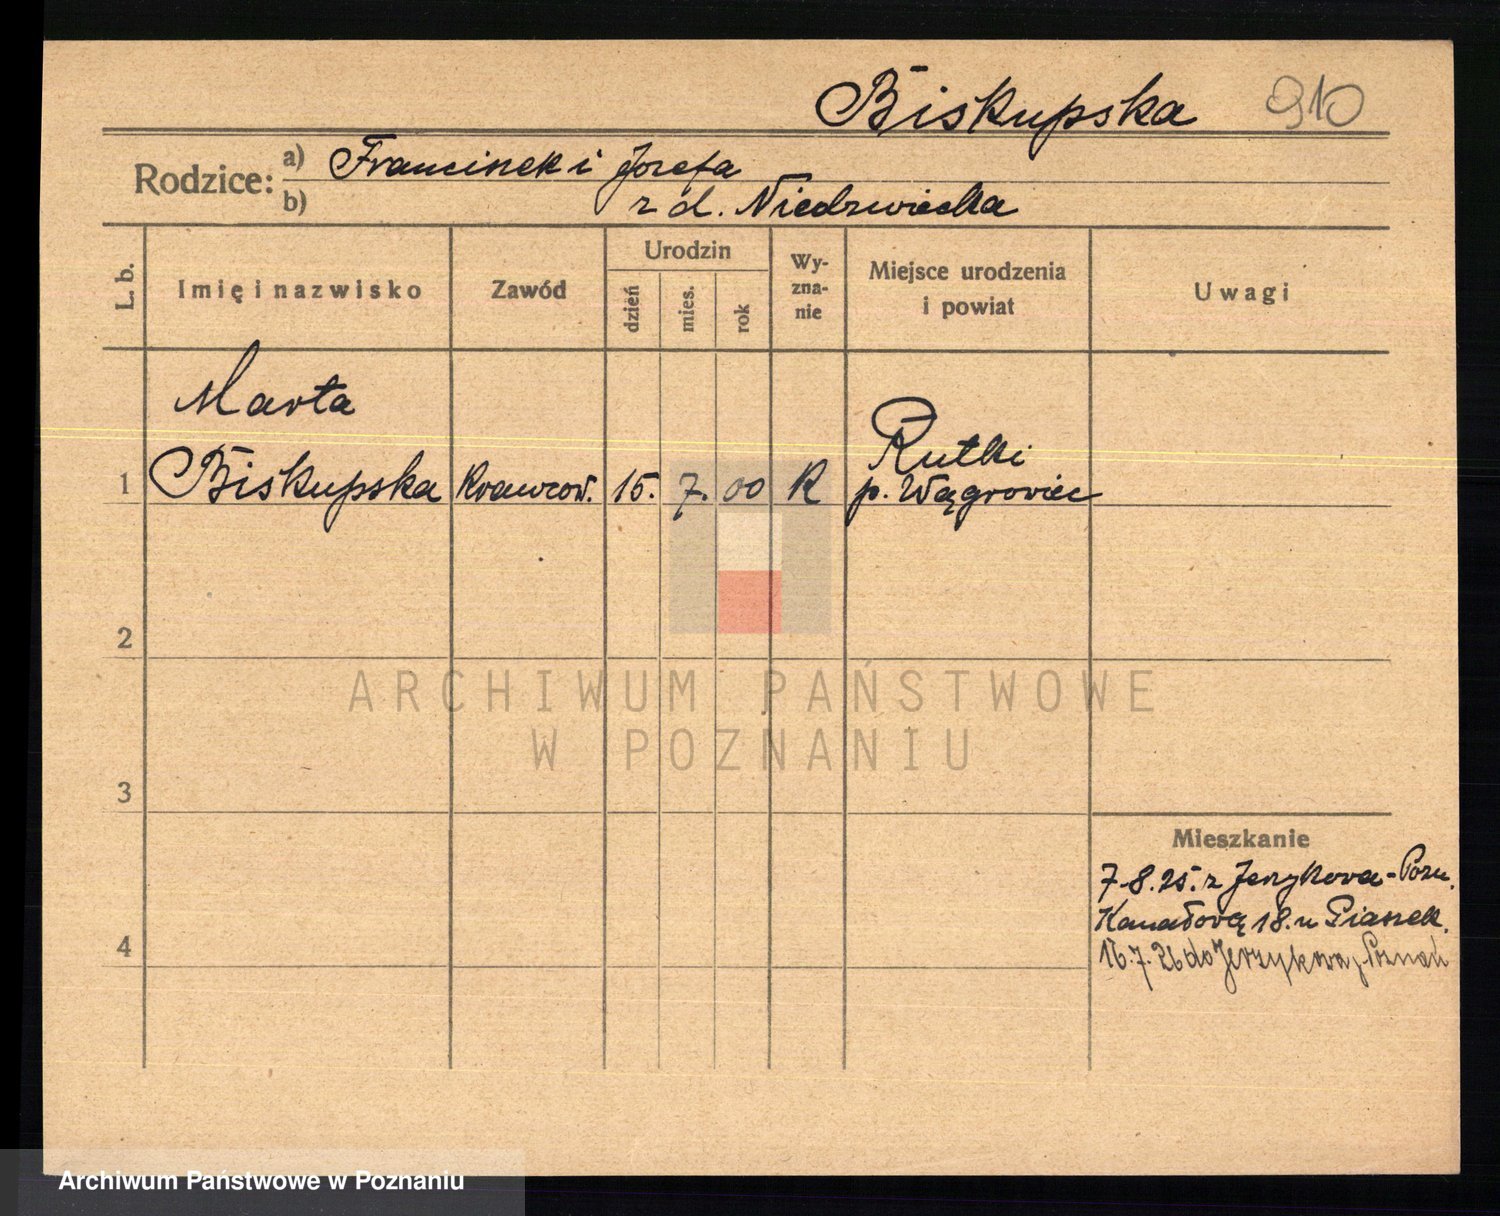 Biskupska 910
Rodzice: a) Franciszek i Józefa
b) z d. Niedzwiecka
L. b. Imię i nazwisko Zawód Urodzin dzień mies. rok Wyzna-nie Miejsce urodzenia i powiat Uwagi
Marta
1 Biskupska Krawcow. 15. 7. 00 R Rutki
p. Wągroviec
2
ARCHIWUM PAŃSTWOWE
W POZNANIU
3
Mieszkanie
7.8.25. z Jerzykova-Pozn.
Kanałová 18. u Piaszek.
4
16.7.26 do Jerzykova p. Poznań
Archiwum Państwowe w Poznaniu